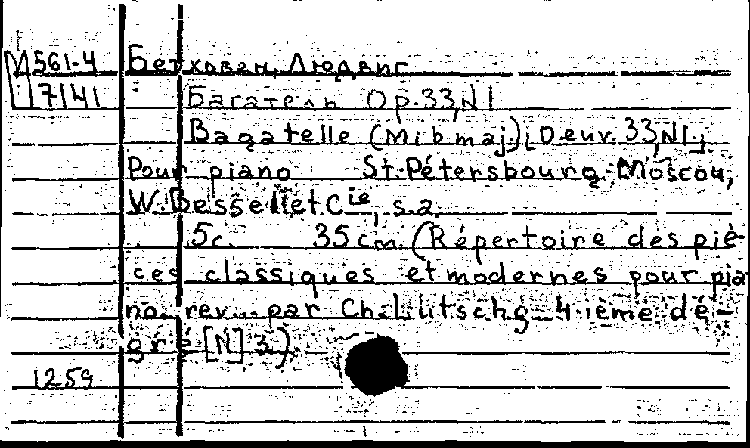 М561-4 Бетховен, Людвиг
7141 Багатель Op.33,N1
Bagatelle (Mi b maj), Oeuv. 33, N1.
Pour piano St.-Pétersbourg; Moscou,
W. Bessel et Cie, s.a.
5c. 35 cm (Répertoire des piè-
ces classiques et modernes pour pia
no rev. par Ch. Lutschg 4-ième dé-
gré [N] 3)
1259